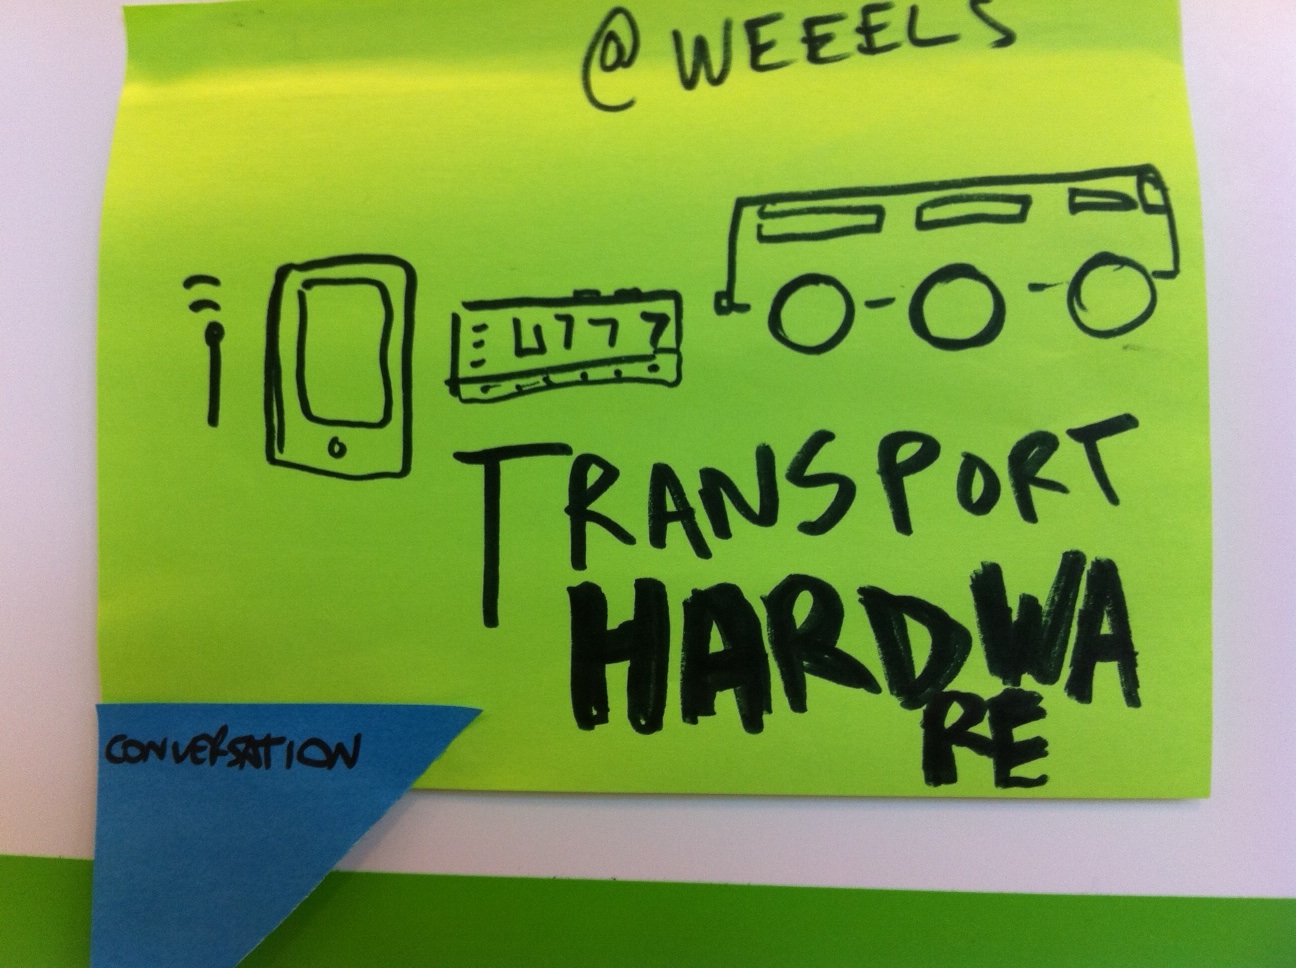 @WEEELS
4777
TRANSPORT
HARDWA
RE
CONVERSATION